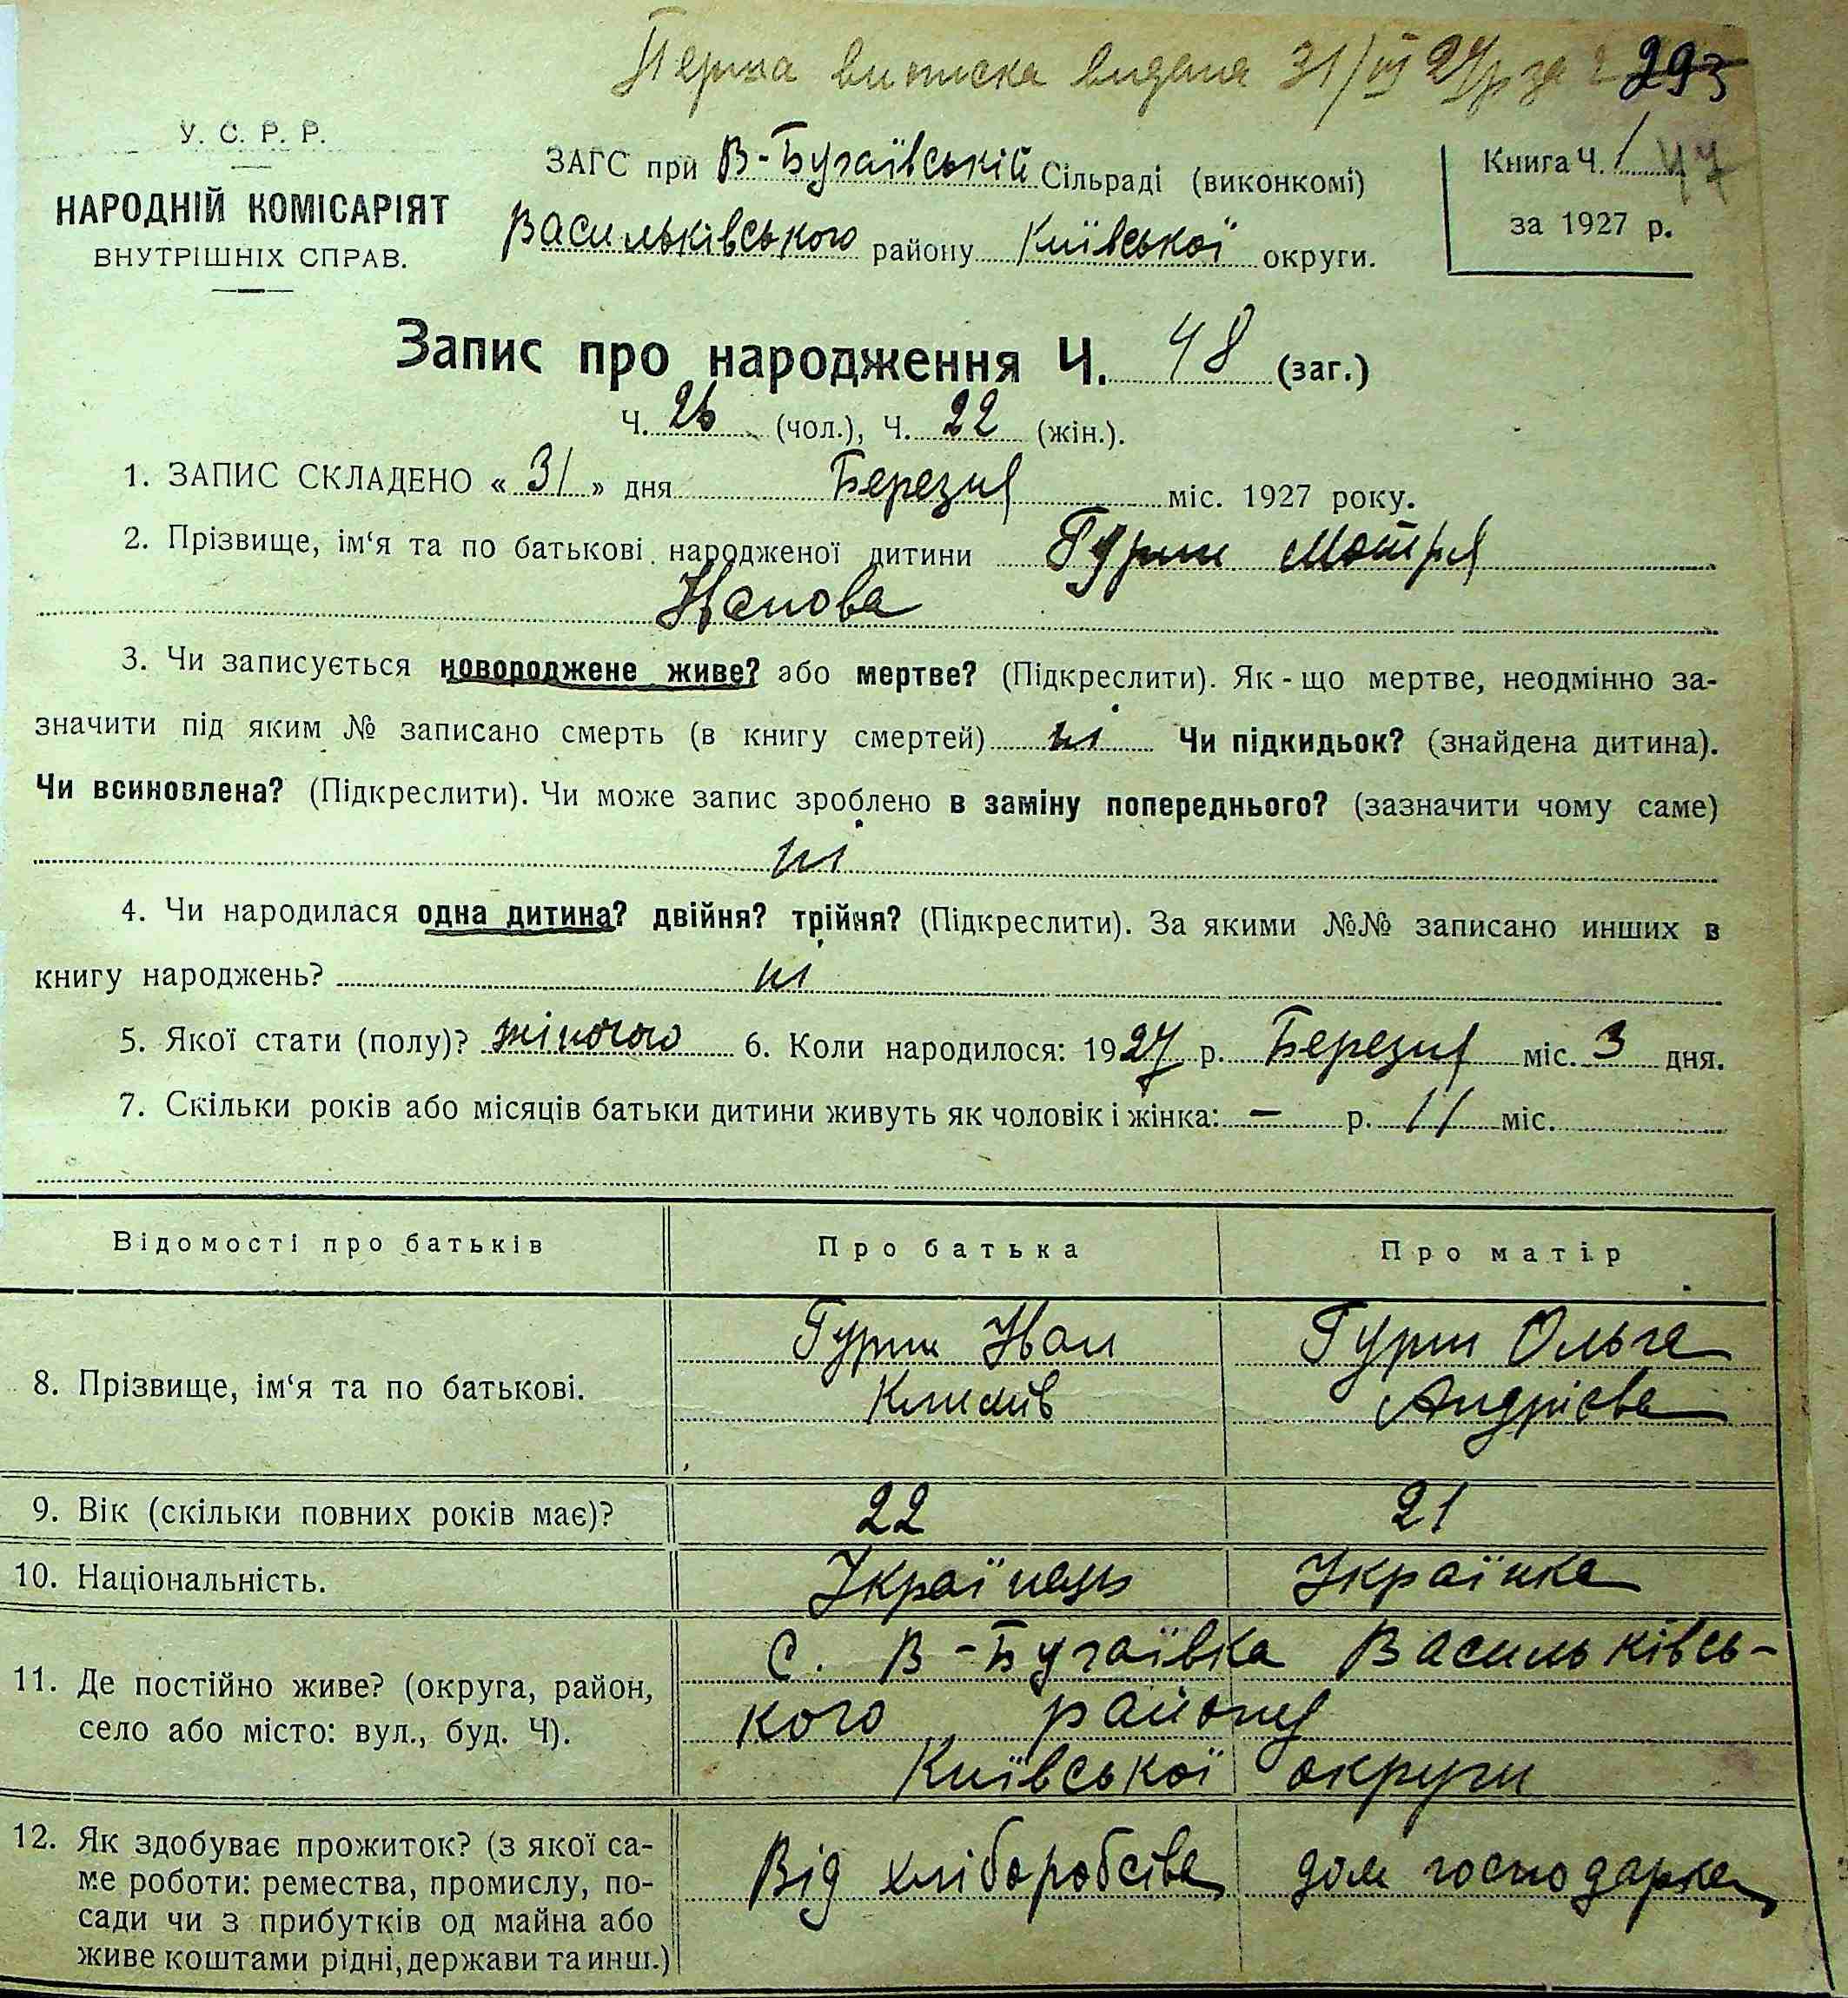 Перша виписка видана 31/III 27 р за 293
У. С. Р. Р.
НАРОДНІЙ КОМІСАРІЯТ
ВНУТРІШНІХ СПРАВ.
ЗАГС при В-Бугаївській Сільраді (виконкомі)
Васильківського району Київської округи.
Книга Ч. 1 47
за 1927 р.
Запис про народження Ч. 48 (заг.)
Ч. 26 (чол.), Ч. 22 (жін.).
1. ЗАПИС СКЛАДЕНО « 31 » дня Березня міс. 1927 року.
2. Прізвище, ім‘я та по батькові народженої дитини Гурин Мотря
Иванова
3. Чи записується новороджене живе? або мертве? (Підкреслити). Як - що мертве, неодмінно за-
значити під яким № записано смерть (в книгу смертей) ні Чи підкидьок? (знайдена дитина).
Чи всиновлена? (Підкреслити). Чи може запис зроблено в заміну попереднього? (зазначити чому саме)
ні
4. Чи народилася одна дитина? двійня? трійня? (Підкреслити). За якими №№ записано инших в
книгу народжень? ні
5. Якої стати (полу)? жіночого 6. Коли народилося: 1927 р. Березня міс. 3 дня.
7. Скільки років або місяців батьки дитини живуть як чоловік і жінка: — р. 11 міс.
Відомості про батьків Про батька Про матір
8. Прізвище, ім‘я та по батькові. Гурин Иван Гурин Ольга
Климів Андрієва
9. Вік (скільки повних років має)? 22 21
10. Національність. Українець Українка
11. Де постійно живе? (округа, район, с. В-Бугаївка Васильківсь-
село або місто: вул., буд. Ч). кого району
Київської округи
12. Як здобуває прожиток? (з якої са-
ме роботи: ремества, промислу, по- Від хліборобства дом господарка
сади чи з прибутків од майна або
живе коштами рідні, держави та инш.)